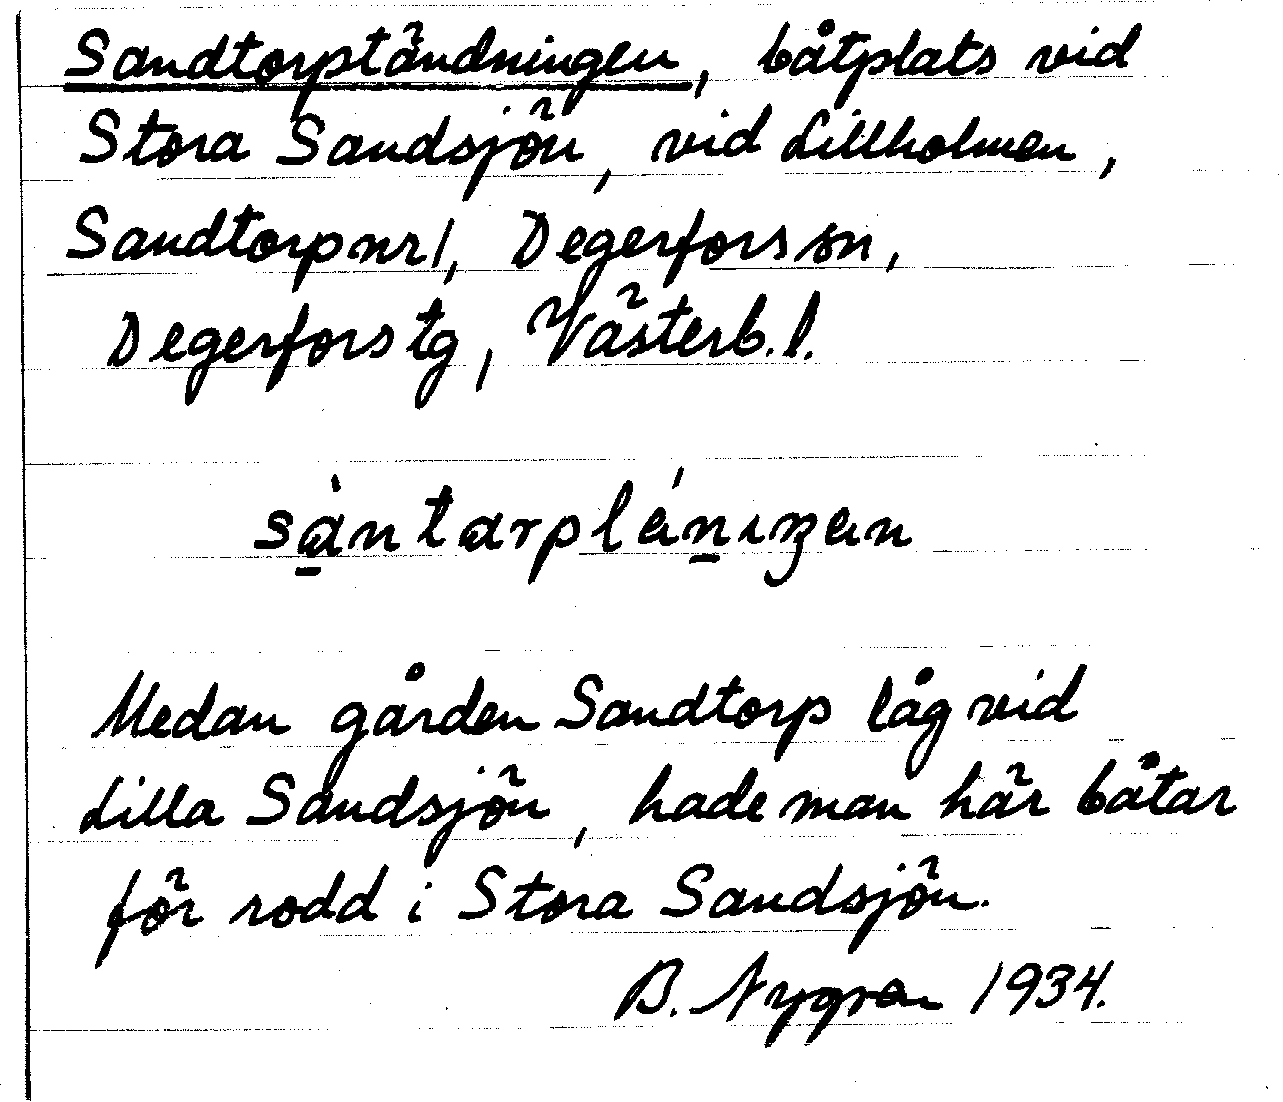 Sandtorptändningen, båtplats vid
Stora Sandsjön, vid Lillholmen,
Sandtorp nr 1, Degerfors sn,
Degerfors tg, Västerb. l.
sàntarplánıŋen
Medan gården Sandtorp låg vid
Lilla Sandsjön, hade man här båtar
för rodd i Stora Sandsjön.
B. Nygren 1934.